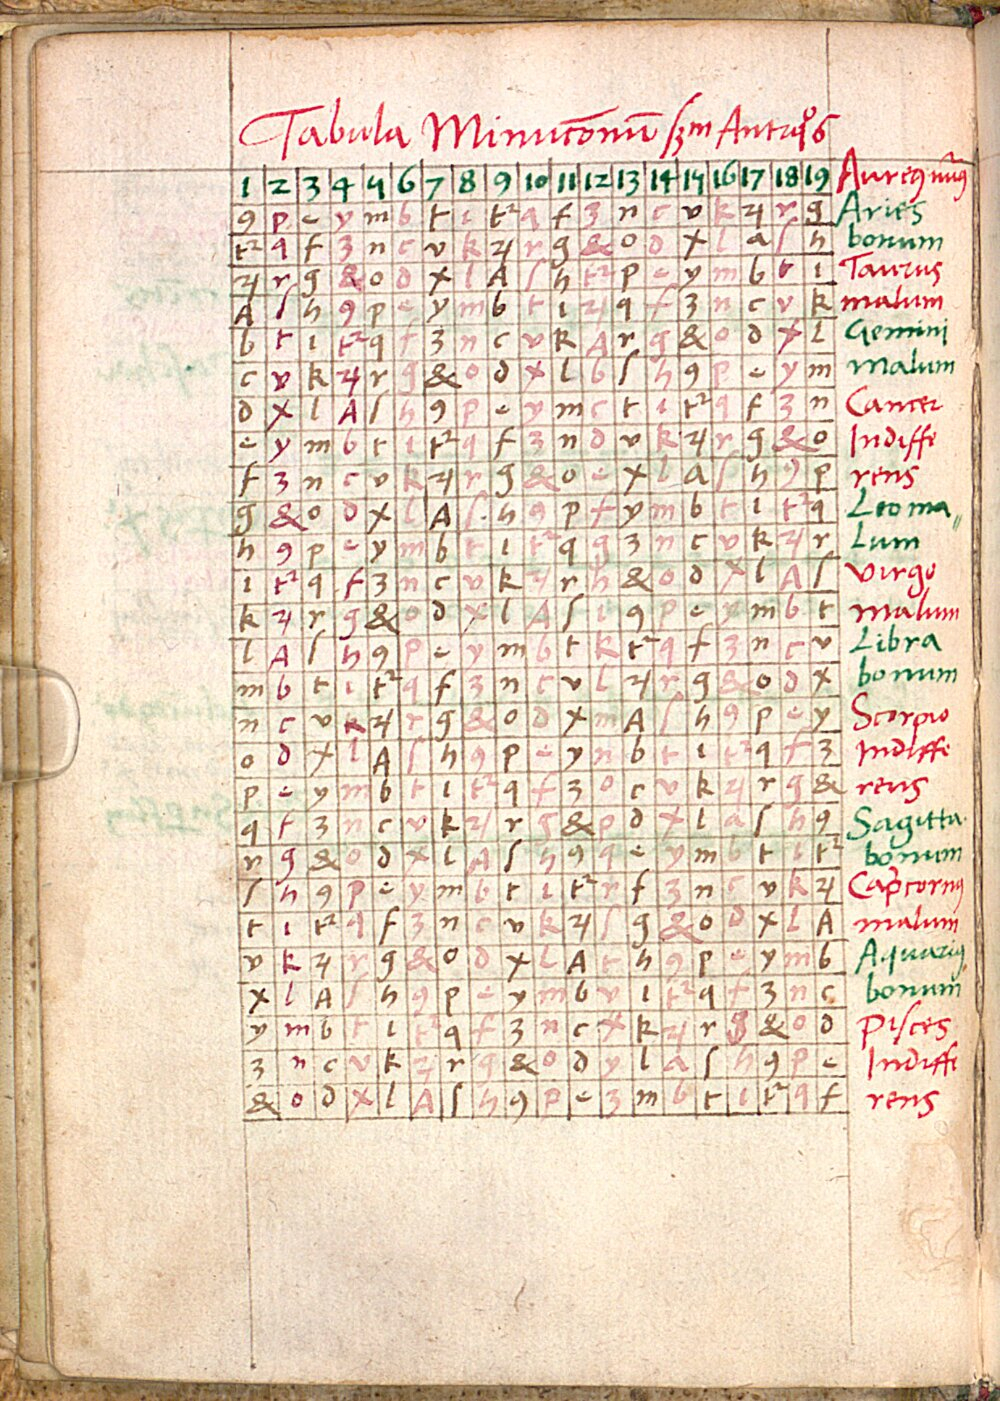 Tabula Minutionũ ſzm Antiqͦs
1 2 3 4 5 6 7 8 9 10 11 12 13 14 15 16 17 18 19 Aureꝯ nũꝯ
ꝯ p e y m b t i t² q f z n c v k ꝝ r g Aries
t² q f z n c v k ꝝ r g & o d x l a ſ h bonum
ꝝ r g & o d x l A ſ h t² p e y m b t i Taurus
A ſ h ꝯ p e y m b t i ꝝ q f z n c v k malum
b t i t² q f z n c v k A r g & o d x l Gemini
c v k ꝝ r g & o d x l b ſ h ꝯ p e y m Malum
d x l A ſ h ꝯ p e y m c t i t² q f z n Cancer
e y m b t i t² q f z n d v k ꝝ r g & o Indiffe
f z n c v k ꝝ r g & o e x l a ſ h ꝯ p rens
g & o d x l A ſ h ꝯ p f y m b t i t² q Leo ma〃
h ꝯ p e y m b t i t² q g z n c v k ꝝ r Lum
i t² q f z n c v k ꝝ r h & o d x l A ſ Virgo
k ꝝ r g & o d x l A ſ i ꝯ p e y m b t malum
l A ſ h ꝯ p e y m b t k t² q f z n c v Libra
m b t i t² q f z n c v l ꝝ r g & o d x bonum
n c v k ꝝ r g & o d x m A ſ h ꝯ p e y Scorpio
o d x l A ſ h ꝯ p e y n b t i t² q f z Indiffe
p e y m b t i t² q f z o c v k ꝝ r g & rens
q f z n c v k ꝝ r g & p d x l a ſ h ꝯ Sagitta
r g & o d x l A ſ h ꝯ q e y m b t i t² bonum
ſ h ꝯ p e y m b t i t² r f z n c v k ꝝ Cap̃cornꝯ
t i t² q f z n c v k ꝝ ſ g & o d x l A malum
v k ꝝ r g & o d x l A t h ꝯ p e y m b Aquariꝯ
x l A ſ h ꝯ p e y m b v i t² q f z n c bonum
y m b t i t² q f z n c x k ꝝ r g & o d Piſces
z n c v k ꝝ r g & o d y l a ſ h ꝯ p e Indiffe
& o d x l A ſ h ꝯ p e z m b t i t² q f rens